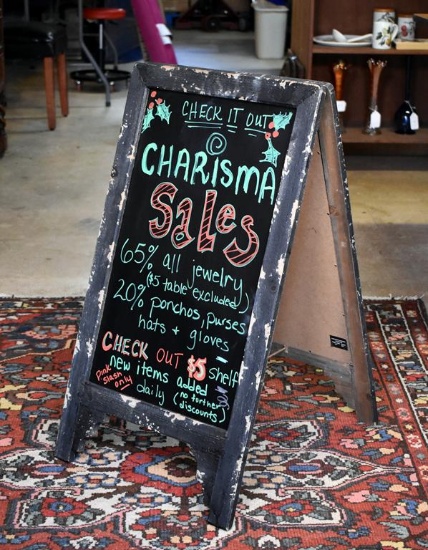 CHECK IT OUT
@
CHARISMA
Sales
65% all jewelry
($5 table excluded)
20% ponchos, purses
hats + gloves
CHECK OUT $5 shelf
Pink
slash
only
new items added
daily (no further
discounts)